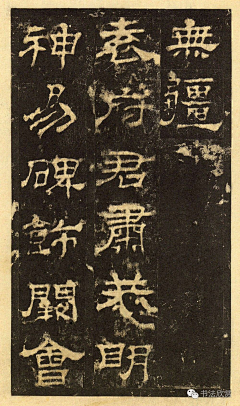 無疆
袁府君肅恭明
神易碑飾闕會
书法欣赏